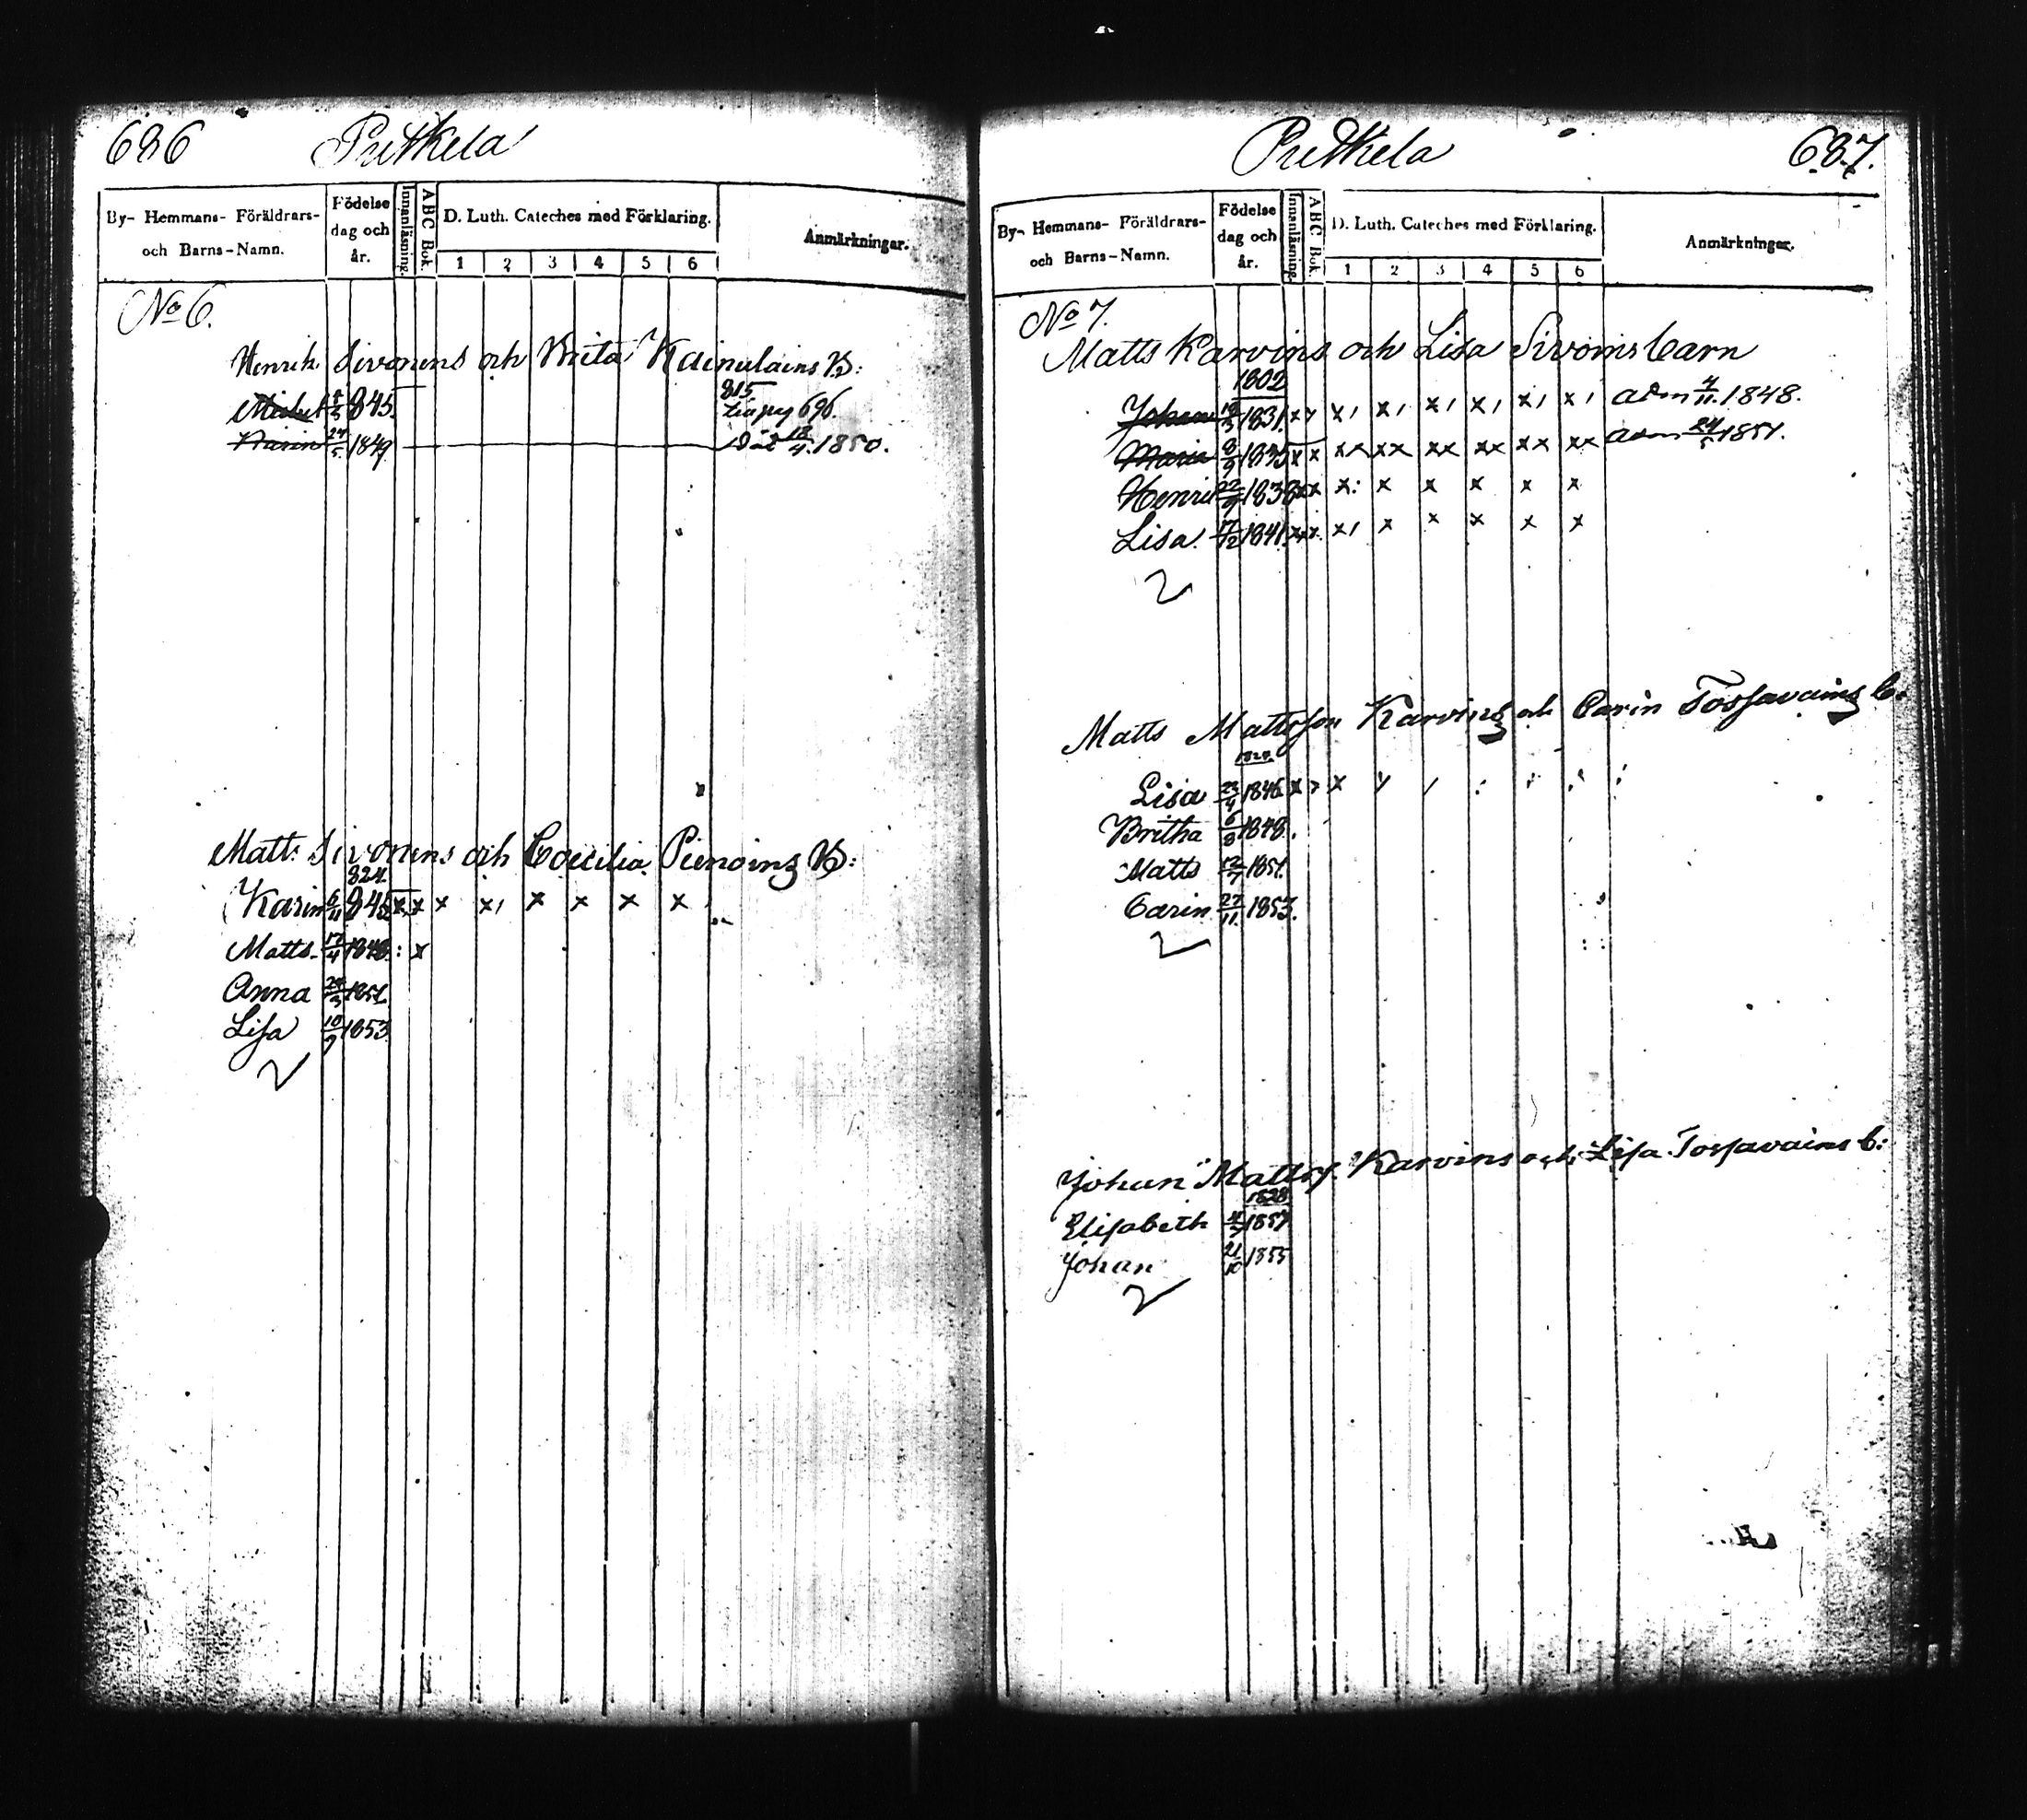 686 Putkela
By- Hemmans- Föräldrars-
och Barns-Namn.
Födelse
dag och
år.
Innanläsning.
ABC Bok.
D. Luth. Cateches med Förklaring.
1 2 3 4 5 6
Anmärkningar.
No 6.
Henrik Sivonens och Brita Kainulains B:
815
845. pag 696.
Karin 27/5 1849 Död 18/4 1850.
Matts Sivonens och Coecilia B:
824
Karin 6/11 845 x x x x x x x x
Matts 17/4 1848 : x
Anna 1851
Lisa 10/9 1853
Putkela 687.
By- Hemmans- Föräldrars-
och Barns-Namn.
Födelse
dag och
år.
Innanläsning.
ABC Bok.
D. Luth. Cateches med Förklaring.
1 2 3 4 5 6
Anmärkningar.
No 7.
Matts Karvins och Lisa Sivoins barn
1802
Johan 1831 x x x x x x adm 4/11 1848.
Maria 8/9 1835 x x xx xx xx xx xx xx adm 24/5 1851.
Henrik 1838 x x x x x x
Lisa 17/12 1841 x x x x x x
Matts Mattsson Karvins och Carin Tossavains b:
Lisa 23/4 1846 x
Britha 6/8 1848.
Matts 12/7 1851
Carin 27/11 1853.
Johan Matts. Karvins och Lisa Tossavains b:
1828
Elisabeth 1857
Johan 21/10 1855